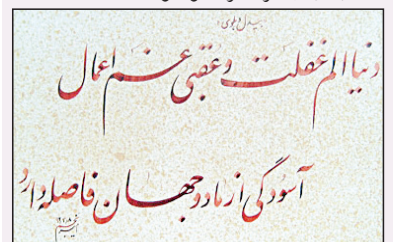 بیدل دهلوی
دنیا الم غفلت و عقبی غم اعمال
آسودگی از ما دو جهان فاصله دارد